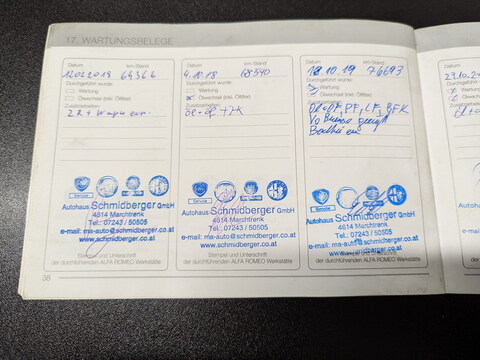 17. WARTUNGSBELEGE
Datum km-Stand
12.02.2018 64366
Durchgeführt wurde:
Wartung
Ölwechsel (inkl. Ölfilter)
Zusatzarbeiten:
Service
Autohaus Schmidberger GmbH
4614 Marchtrenk
Tel.: 07243 / 50505
e-mail: ma-auto@schmidberger.co.at
www.schmidberger.co.at
Stempel und Unterschrift
der durchführenden ALFA ROMEO Werkstätte
36
Datum km-Stand
4.10.18 68540
Durchgeführt wurde:
Wartung
Ölwechsel (inkl. Ölfilter)
Zusatzarbeiten:
Service
Autohaus Schmidberger GmbH
4614 Marchtrenk
Tel.: 07243 / 50505
e-mail: ma-auto@schmidberger.co.at
www.schmidberger.co.at
Stempel und Unterschrift
der durchführenden ALFA ROMEO Werkstätte
Datum km-Stand
18.10.19 76693
Durchgeführt wurde:
Wartung
Ölwechsel (inkl. Ölfilter)
Zusatzarbeiten:
PF, LF, BFK
Service
Autohaus Schmidberger GmbH
4614 Marchtrenk
Tel.: 07243 / 50505
e-mail: ma-auto@schmidberger.co.at
www.schmidberger.co.at
Stempel und Unterschrift
der durchführenden ALFA ROMEO Werkstätte
Datum